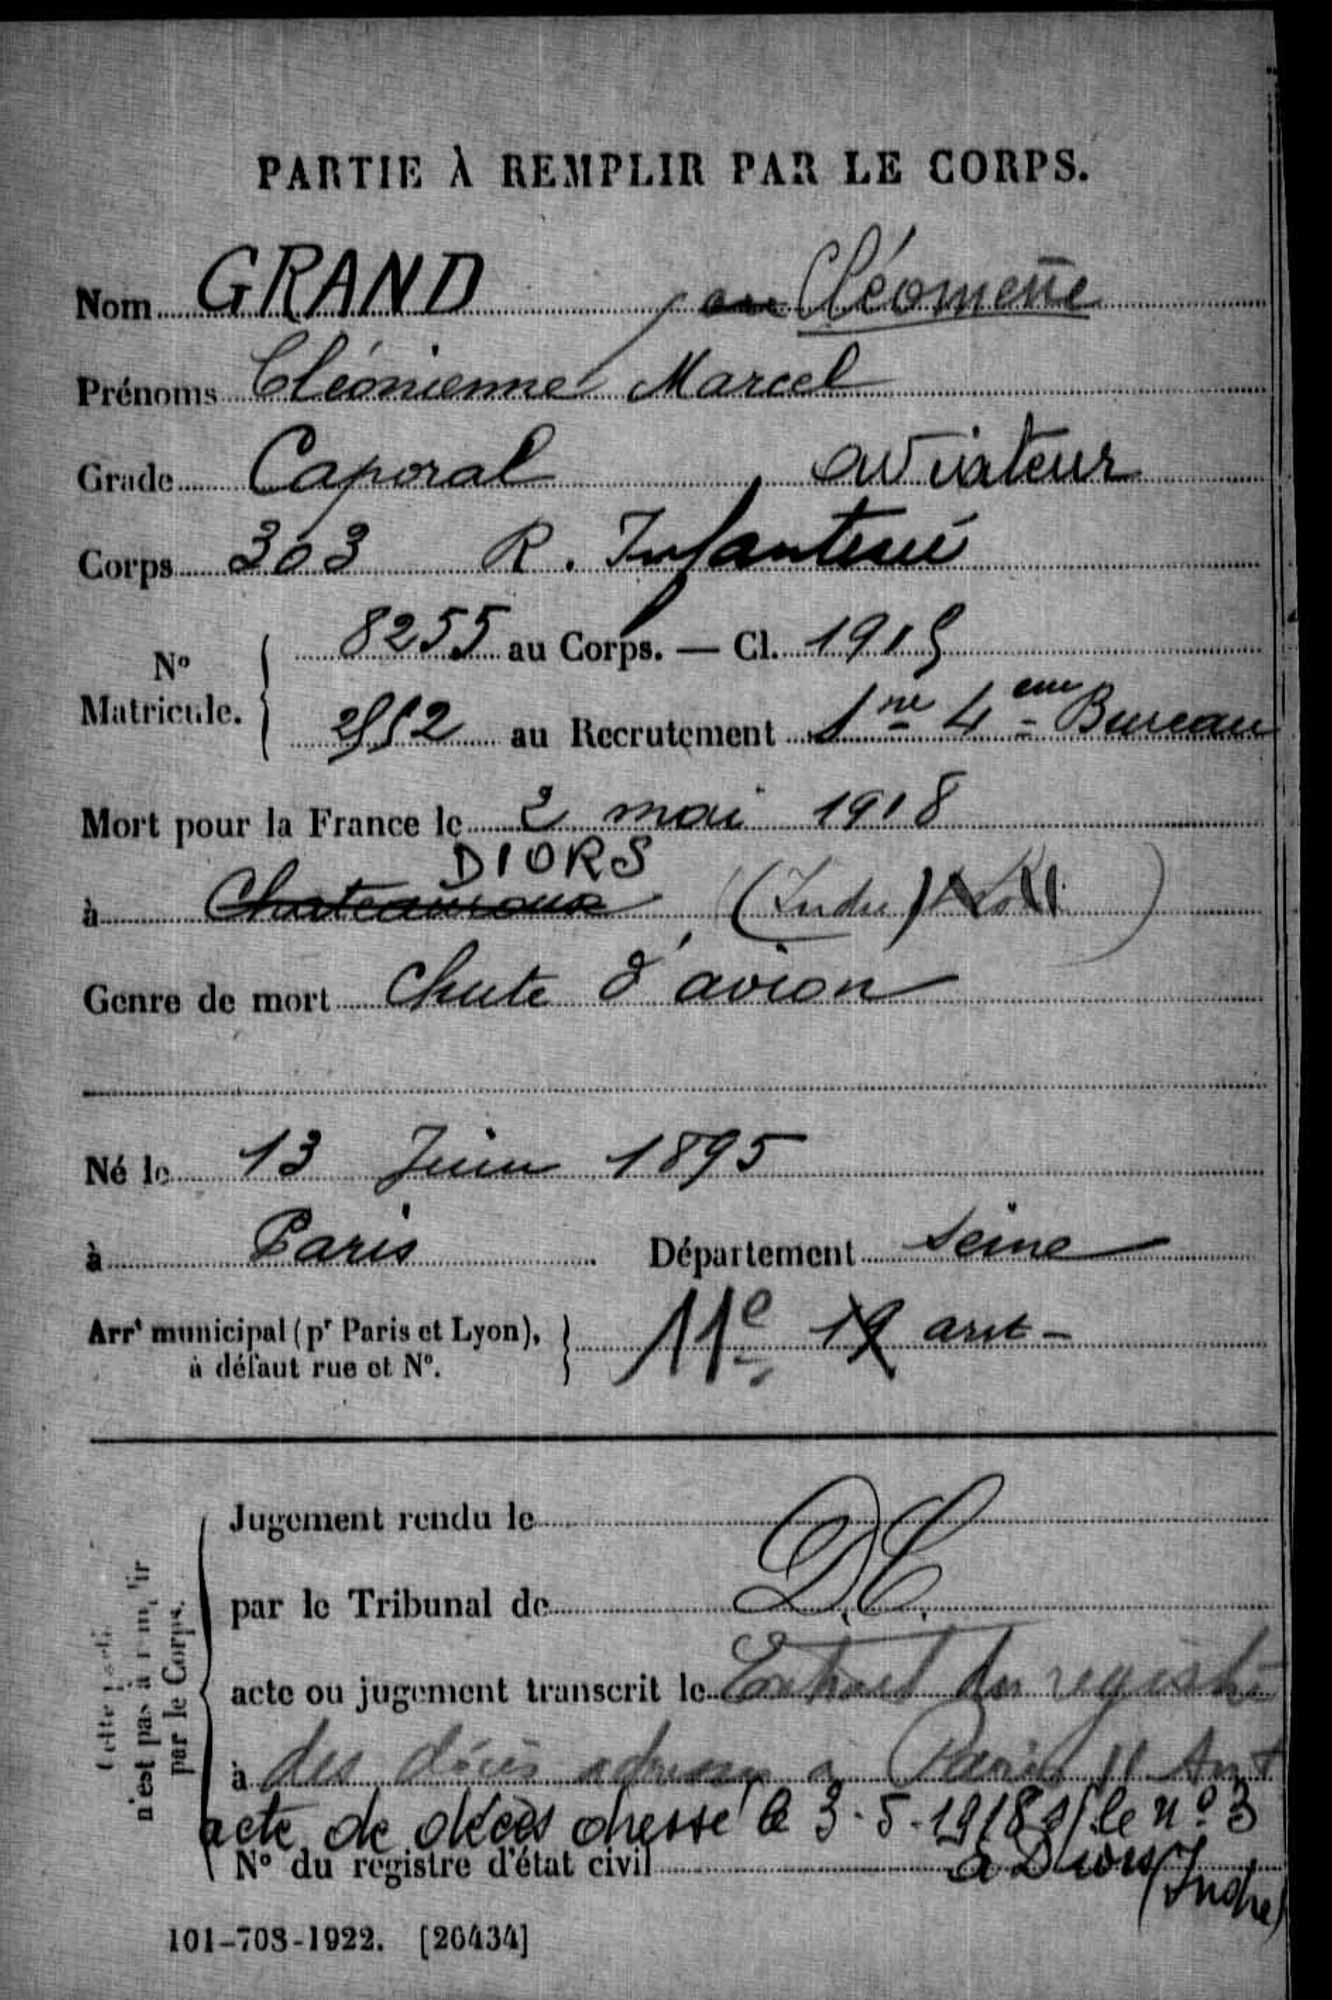 PARTIE À REMPLIR PAR LE CORPS.
Nom GRAND Cléomène
Prénoms Cléonienne Marcel
Grade Caporal aviateur
Corps 303 R. Infanterie
N° Matricule. 8255 au Corps. — Cl. 1915
2852 au Recrutement 1re 4eme Bureau
Mort pour la France le 2 mai 1918
DIORS
à Chateauroux (Indre)
Genre de mort Chute d'avion
Né le 13 Juin 1895
à Paris Département Seine
Arrt municipal (pr Paris et Lyon), à défaut rue et N°. 11e 19 arrt -
Cette partie n'est pas à remplir par le Corps.
Jugement rendu le
par le Tribunal de D.C.
acte ou jugement transcrit le Extrait du registre
à des décès adressé à Paris 11 Arrt
acte de décès dressé le 3-5-1918 s/ le n° 3
N° du registre d'état civil à Diors (Indre)
101-708-1922. [26434]